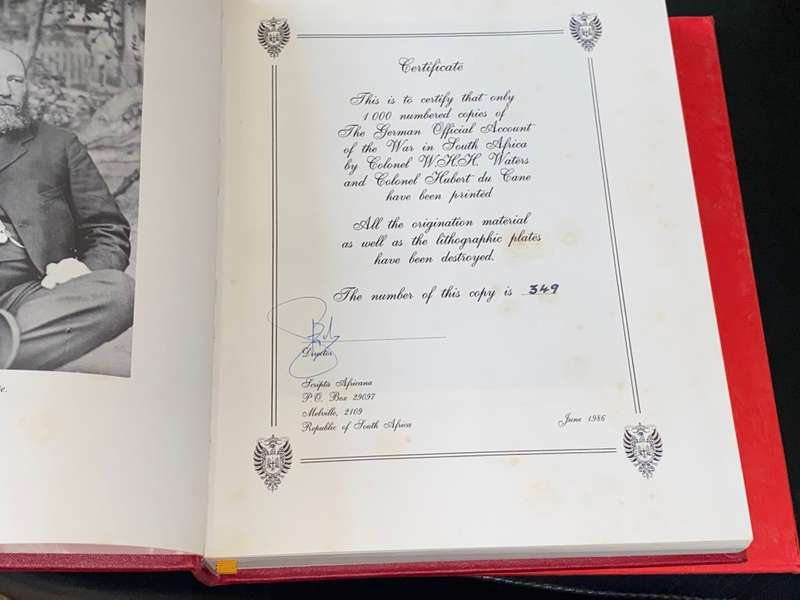 Certificate
This is to certify that only
1 000 numbered copies of
The German Official Account
of the War in South Africa
by Colonel W.H.H. Waters
and Colonel Hubert du Cane
have been printed
All the origination material
as well as the lithographic plates
have been destroyed.
The number of this copy is 349
Director
Scripta Africana
P.O. Box 29097
Melville, 2109
Republic of South Africa
June 1986